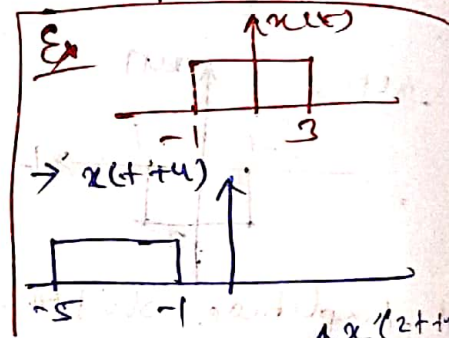 Ex
x(t)
-1 3
→ x(t+4)
-5 -1
x(2t+4